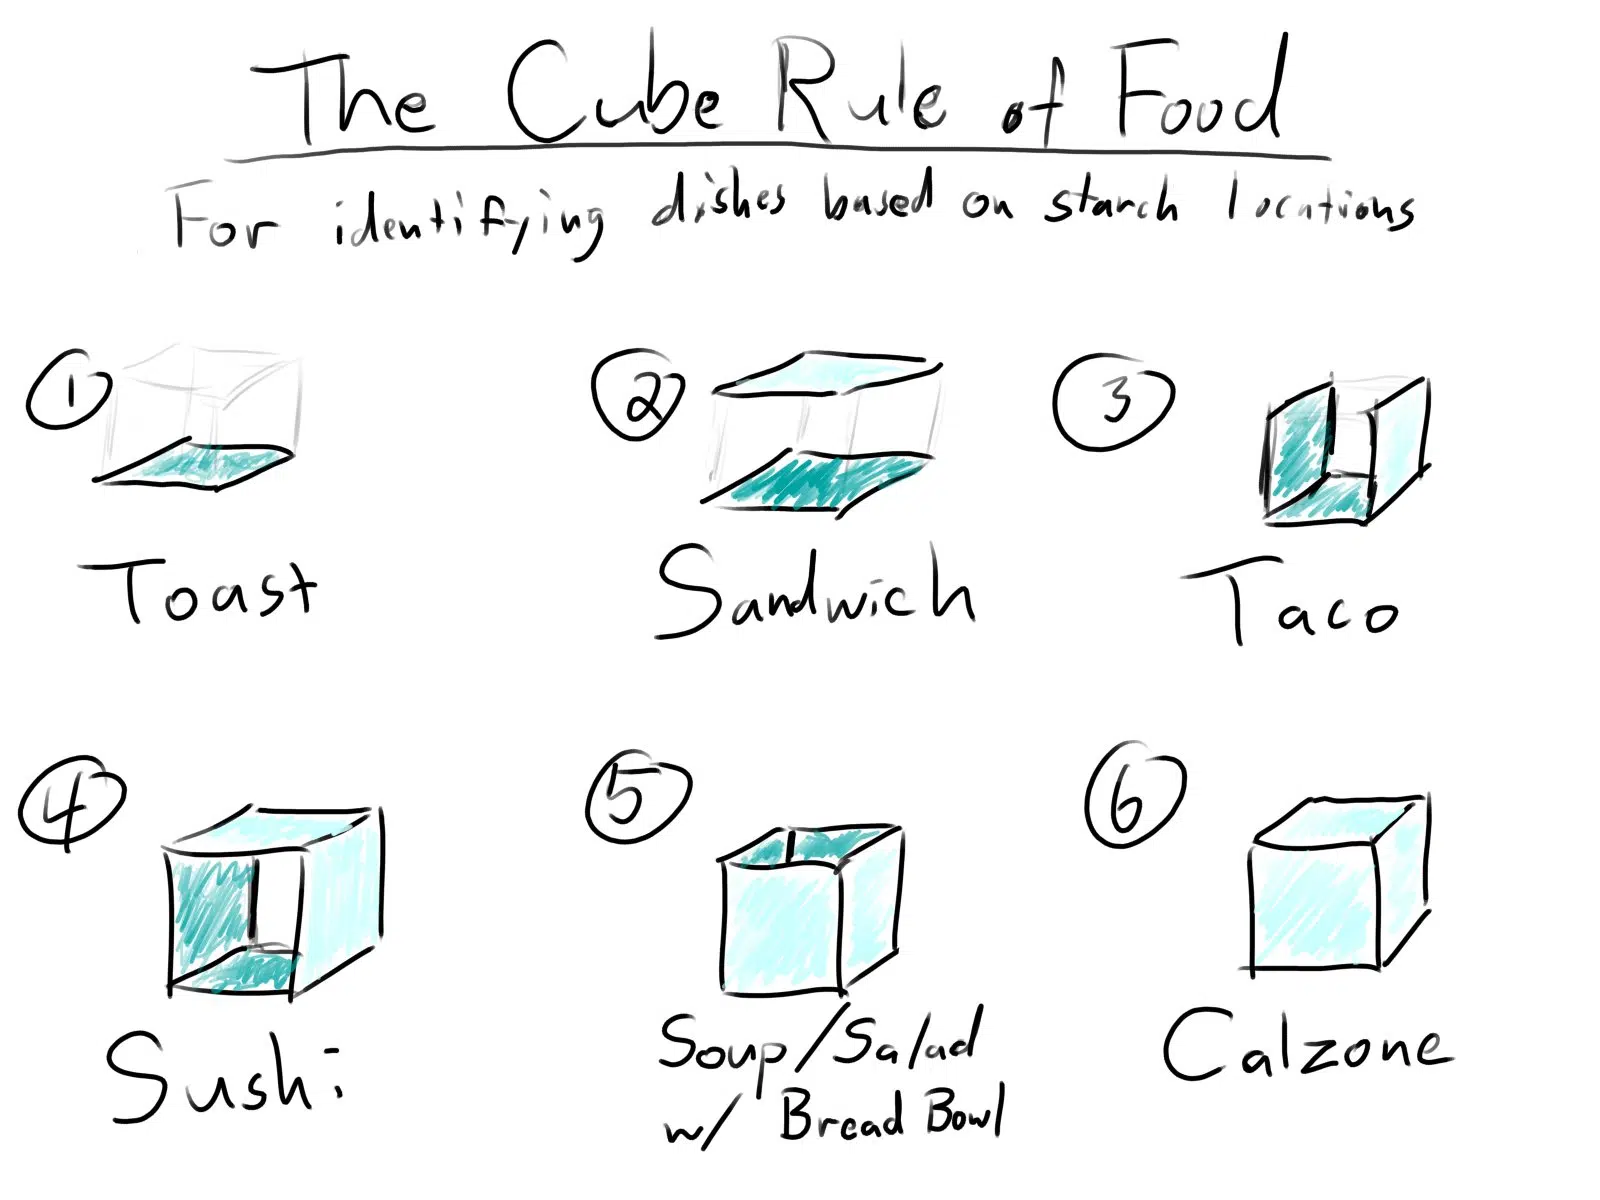 The Cube Rule of Food
For identifying dishes based on starch locations
1
2
3
Toast
Sandwich
Taco
4
5
6
Sushi
Soup/Salad
w/ Bread Bowl
Calzone